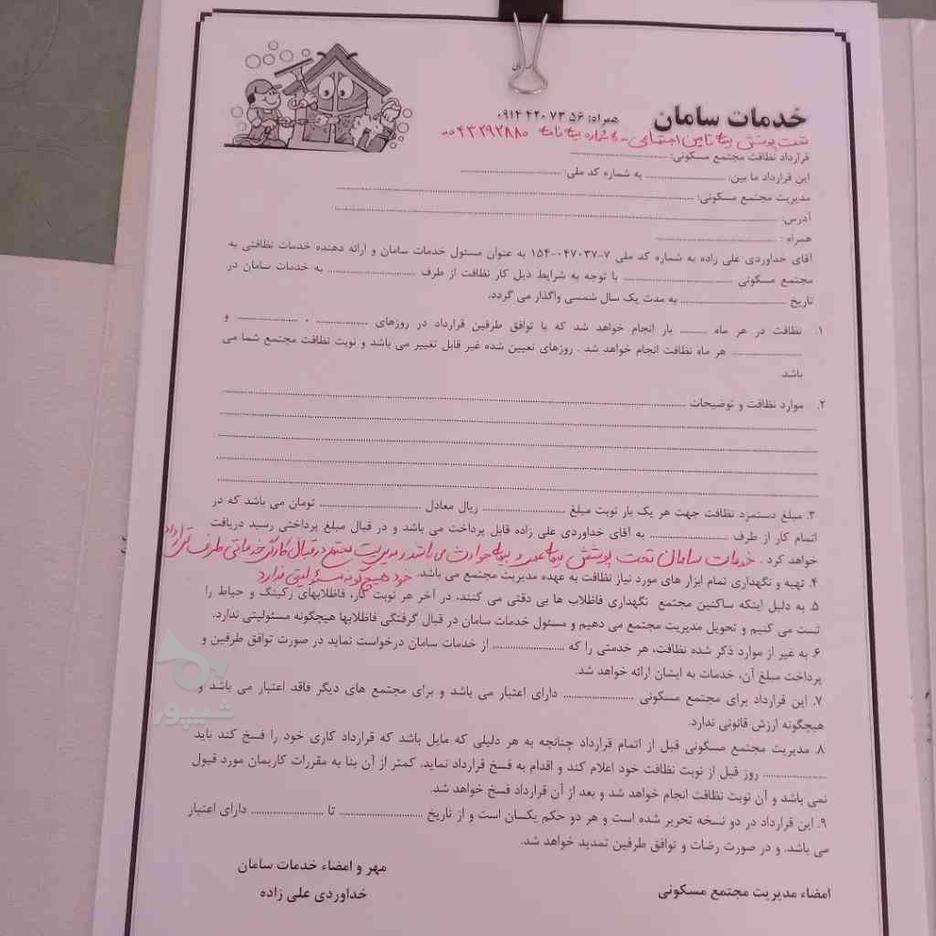 خدمات سامان همراه: ۰۹۱۴۴۲۰۷۳۵۶
تحت پوشش بیمه تامین اجتماعی - با شماره بیمه نامه ۰۰۴۳۲۹۲۸۸۰
قرارداد نظافت مجتمع مسکونی: ........................
این قرارداد ما بین: ........................ به شماره کد ملی: ........................
مدیریت مجتمع مسکونی: ........................
آدرس: ........................
همراه : ........................
آقای خداوردی علی زاده به شماره کد ملی ۷-۰۴۷۰۳۷-۱۵۴ به عنوان مسئول خدمات سامان و ارائه دهنده خدمات نظافتی به
مجتمع مسکونی ........................ با توجه به شرایط ذیل کار نظافت از طرف ........................ به خدمات سامان در
تاریخ ........................ به مدت یک سال شمسی واگذار می گردد.
۱. نظافت در هر ماه ........ بار انجام خواهد شد که با توافق طرفین قرارداد در روزهای ................ . ................ و
................ هر ماه نظافت انجام خواهد شد . روزهای تعیین شده غیر قابل تغییر می باشد و نوبت نظافت مجتمع شما می
باشد.
۲. موارد نظافت و توضیحات ........................
۳. مبلغ دستمزد نظافت جهت هر یک بار نوبت مبلغ ........................ ریال معادل ........................ تومان می باشد که در
اتمام کار از طرف ........................ به آقای خداوردی علی زاده قابل پرداخت می باشد و در قبال مبلغ پرداختی رسید دریافت
خواهد کرد . خدمات سامان تحت پوشش بیمه عمر و بیمه حوادث می باشد و مدیریت مجتمع در قبال کارگر خدماتی طرف قرارداد
خود هیچ گونه مسئولیتی ندارد
۴. تهیه و نگهداری تمام ابزار های مورد نیاز نظافت به عهده مدیریت مجتمع می باشد.
۵. به دلیل اینکه ساکنین مجتمع نگهداری فاظلاب ها بی دقتی می کنند، در آخر هر نوبت کار، فاظلابهای رکینگ و حیاط را
تست می کنیم و تحویل مدیریت مجتمع می دهیم و مسئول خدمات سامان در قبال گرفتگی فاظلابها هیچگونه مسئولیتی ندارد.
۶. به غیر از موارد ذکر شده نظافت، هر خدمتی را که ........................ از خدمات سامان درخواست نماید در صورت توافق طرفین و
پرداخت مبلغ آن، خدمات به ایشان ارائه خواهد شد.
۷. این قرارداد برای مجتمع مسکونی ........................ دارای اعتبار می باشد و برای مجتمع های دیگر فاقد اعتبار می باشد و
هیچگونه ارزش قانونی ندارد.
۸. مدیریت مجتمع مسکونی قبل از اتمام قرارداد چنانچه به هر دلیلی که مایل باشد که قرارداد کاری خود را فسخ کند باید
................ روز قبل از نوبت نظافت خود اعلام کند و اقدام به فسخ قرارداد نماید. کمتر از آن بنا به مقررات کاریمان مورد قبول
نمی باشد و آن نوبت نظافت انجام خواهد شد و بعد از آن قرارداد فسخ خواهد شد.
۹. این قرارداد در دو نسخه تحریر شده است و هر دو حکم یکسان است و از تاریخ ........................ تا ........................ دارای اعتبار
می باشد. و در صورت رضات و توافق طرفین تمدید خواهد شد.
امضاء مدیریت مجتمع مسکونی مهر و امضاء خدمات سامان
خداوردی علی زاده
شیپور